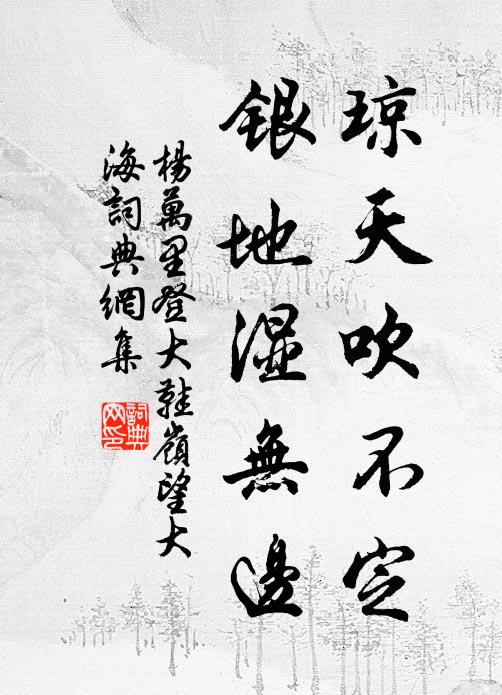 琼天吹不定
銀地湿無邊
楊萬里登大鞋嶺望大
海詞典網集
詞典
网印